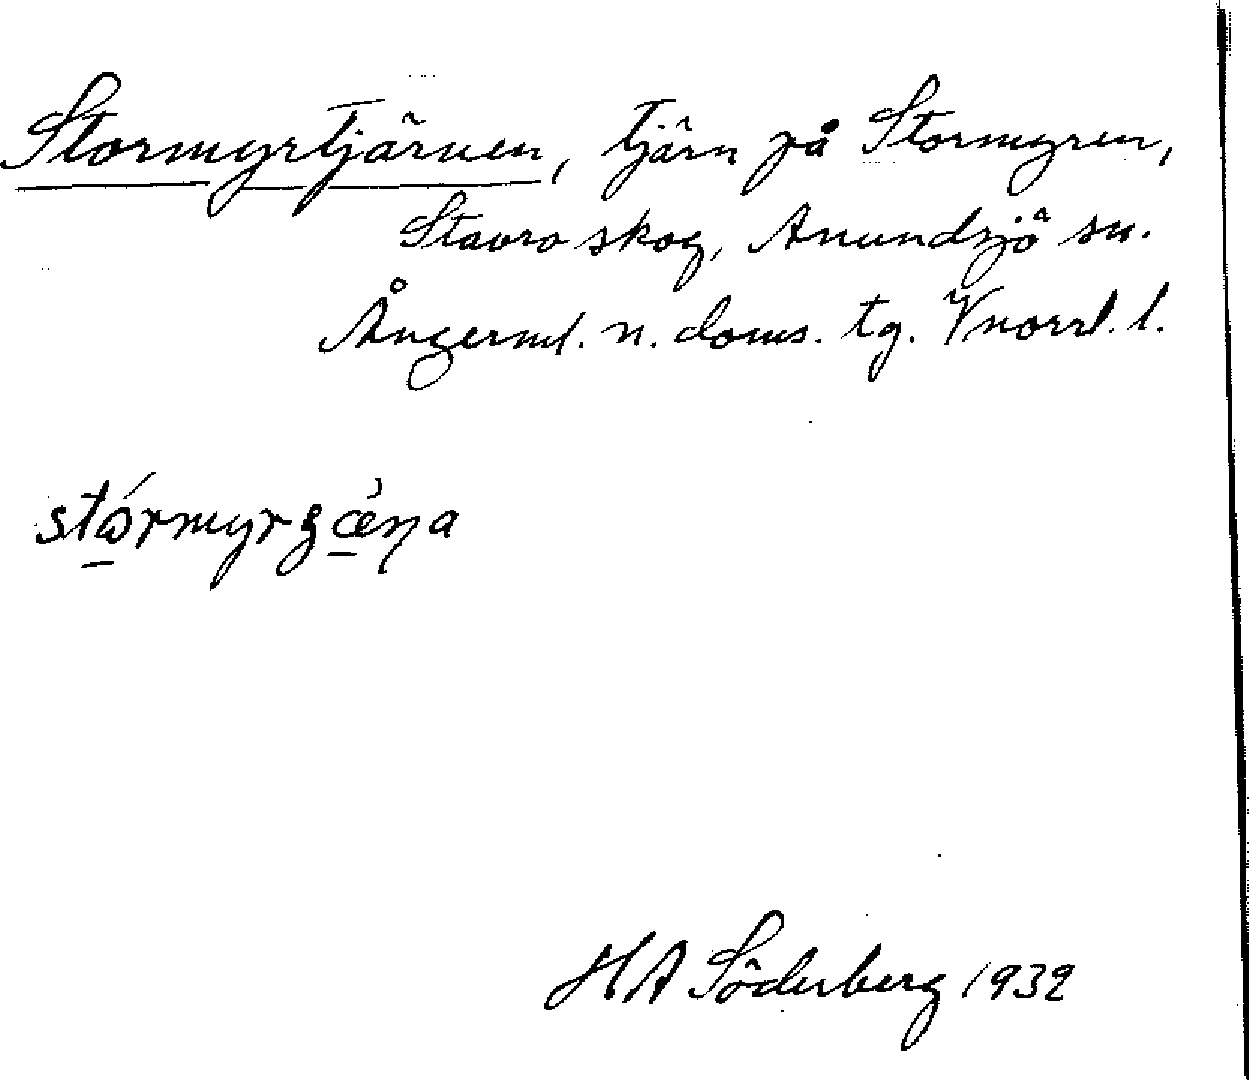 Stormyrtjärnen, tjärn på Stormyren,
Stavro skog, Anundsjö sn.
Ångerml. n. doms. tg. Vnorrl. l.
stɷ́rmyrʒæ̀ṇa
HA Söderberg 1932